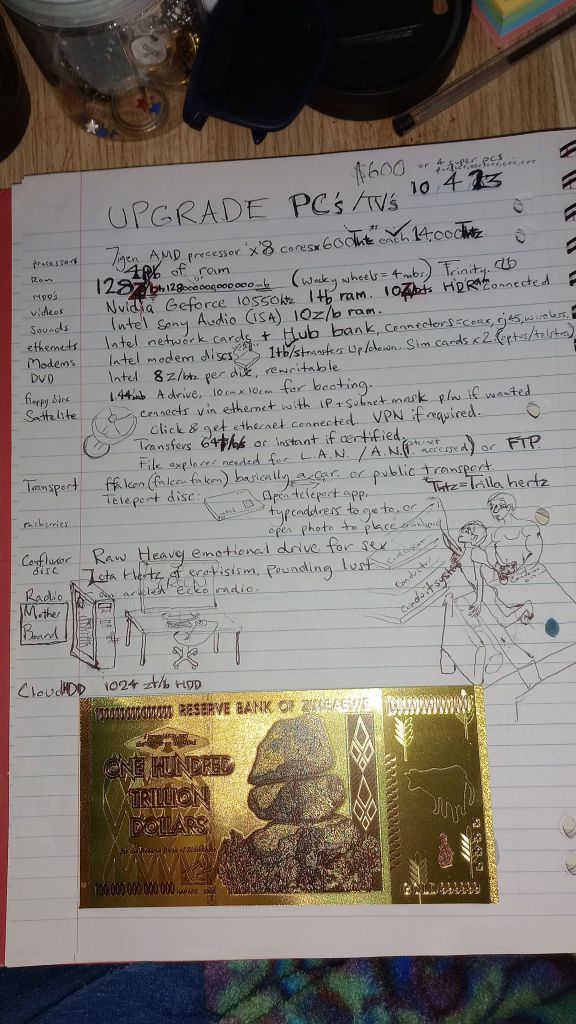 $600 or 4 super pcs
UPGRADE PC's/TV's 10.4 23
processors 7gen AMD processor x8 cores x 600 Thtz each 14,000 Thtz
Ram 4pb of ram
HDD's 128 Z/b 128000000000000mb (Wacky wheels = 4mbs) Trinity.
videos Nvidia Geforce 10550htz 1tb ram. HDRam connected
Sounds Intel Sony Audio (ISA) 10z/b ram.
ethernets Intel network cards + Hub bank, connectors=coax, rj45, wireless.
Modems Intel modem discs 1tb/s transfers Up/down. Sim cards x2 (optus/telstra)
DVD Intel 8z/btz per disk, rewritable
floppy Disc 1.44mb A drive, 10cm x 10cm for booting.
Sattelite connects via ethernet with IP + Subnet mask p/w if wanted
Click & get ethernet connected. VPN if required.
Transfers 64 or instant if certified.
File explorer needed for L.A.N. / A.N. (internet accessed) or FTP
Transport ffalcon (falcon falcon) basically a car. or public transport
Teleport disc: Open teleport app, *Thtz = Trilla hertz
type address to go to, or
rasberries open photo to place
Confluxor disc Raw Heavy emotional drive for sex
Zeta Hertz of erotisism, pounding lust
Radio ecko radio.
Mother
Board
Conduit system
Cloud HDD 1024 zt/b HDD
100000000000000 RESERVE BANK OF ZIMBABWE
ONE HUNDRED
TRILLION
DOLLARS
for the Reserve Bank of Zimbabwe
100 000 000 000 000 HARARE 2008
GOLD 999999